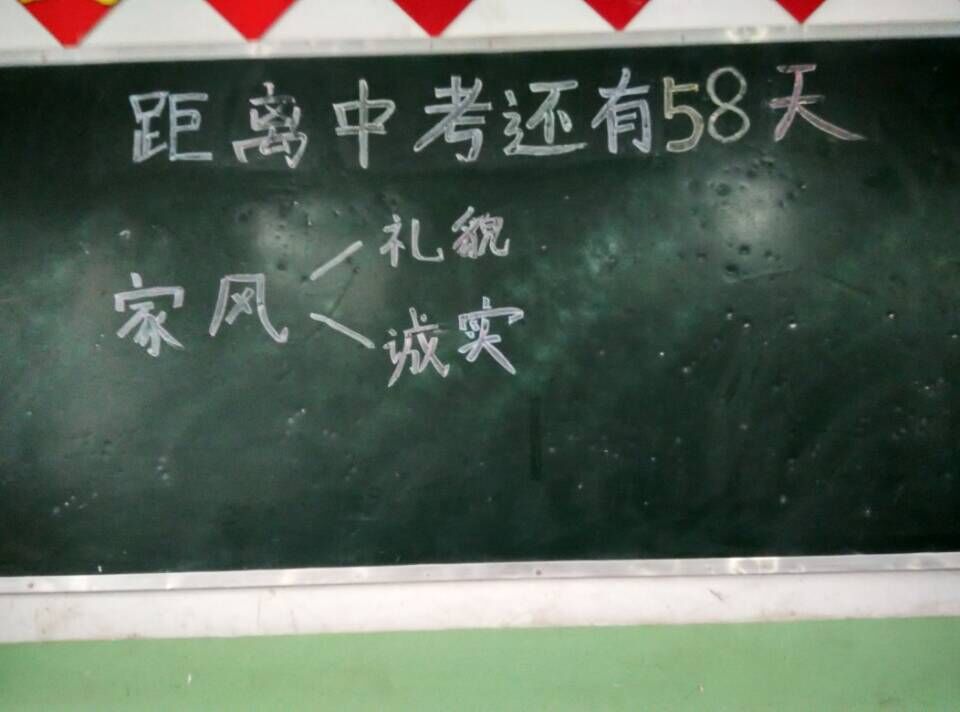 距离中考还有58天
礼貌
家风
诚实